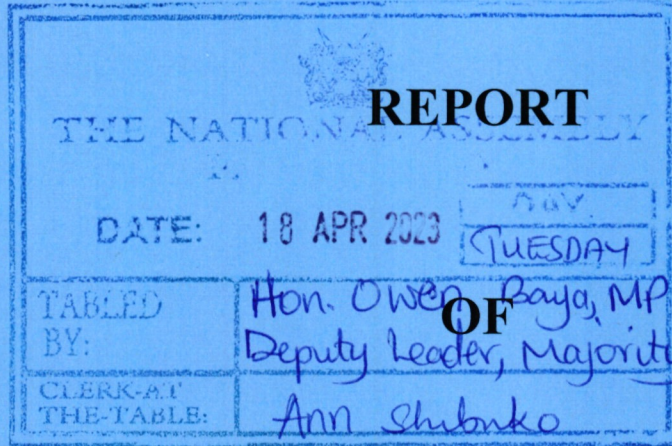 REPORT
THE NATIONAL ASSEMBLY
DATE: 18 APR 2023
DAY.
TUESDAY
TABLED BY:
Hon. Owen Baya, MP
OF
Deputy Leader, Majority
CLERK-AT THE-TABLE:
Ann